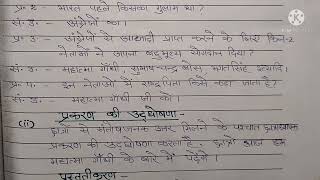 प्र. 2- भारत पहले किसका गुलाम था ?
सं. उ.- अंग्रेजों का।
प्र. 3- अंग्रेजों से आजादी प्राप्त करने के लिए किन-2
नेताओं ने अपना बहुमूल्य योगदान दिया?
सं. उ.- महात्मा गाँधी, सुभाष-चन्द्र बोस, भगतसिंह इत्यादि।
प्र. 4- इन नेताओं में राष्ट्रपिता किसे कहा जाता है?
सं. उ.- महात्मा गाँधी जी को।
(ii) प्रकरण की उद्घोषणा-
छात्रों से संतोषजनक उत्तर मिलने के पश्चात
प्रकरण की उद्घोषणा करता है- आज हम
महात्मा गाँधी के बारे में पढ़ेंगे।
प्रस्तुतीकरण-